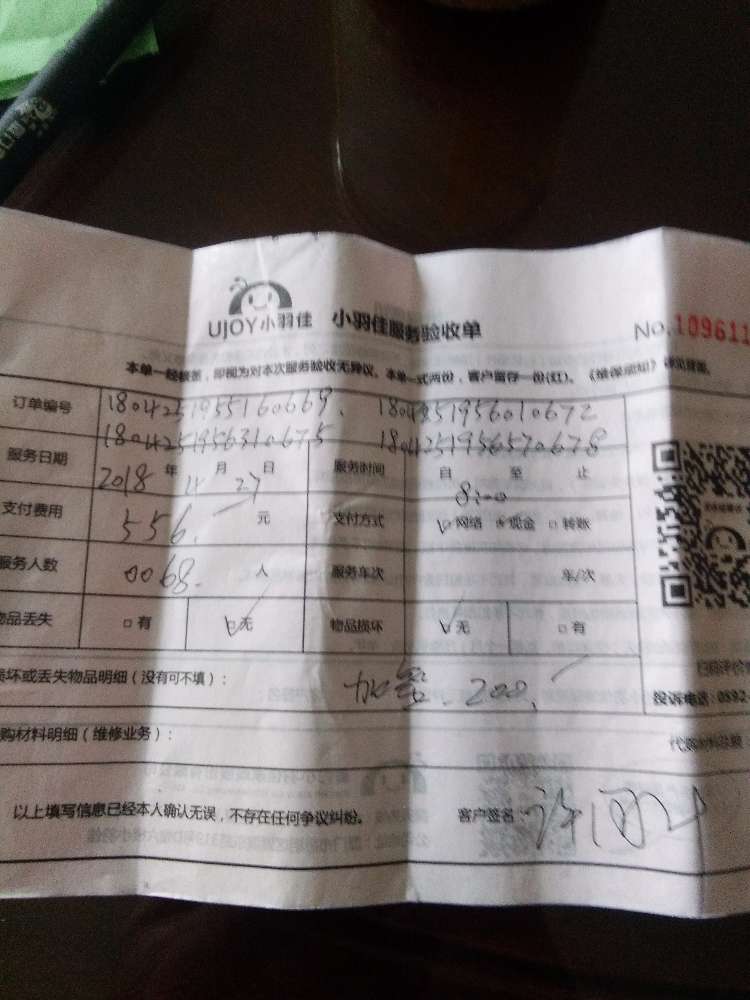 UJOY小羽佳 小羽佳服务验收单 No.109611
本单一经核签，即视为对本次服务验收无异议。本单一式两份，客户留存一份(红)。《维保须知》详见背面。
订单编号 1804251955160669、 1804251956010672
1804251956310675 1804251956570678
服务日期 2018年 月 27日 服务时间 自 8:00 至 止
支付费用 556. 元 支付方式 网络 现金 转账
服务人数 0068. 人 服务车次 车/次
物品丢失 有 无 物品损坏 无 有
损坏或丢失物品明细（没有可不填）： 200.
投诉电话：0592
代购材料明细（维修业务）： 代购材料总额
以上填写信息已经本人确认无误，不存在任何争议纠纷。 客户签名： 许